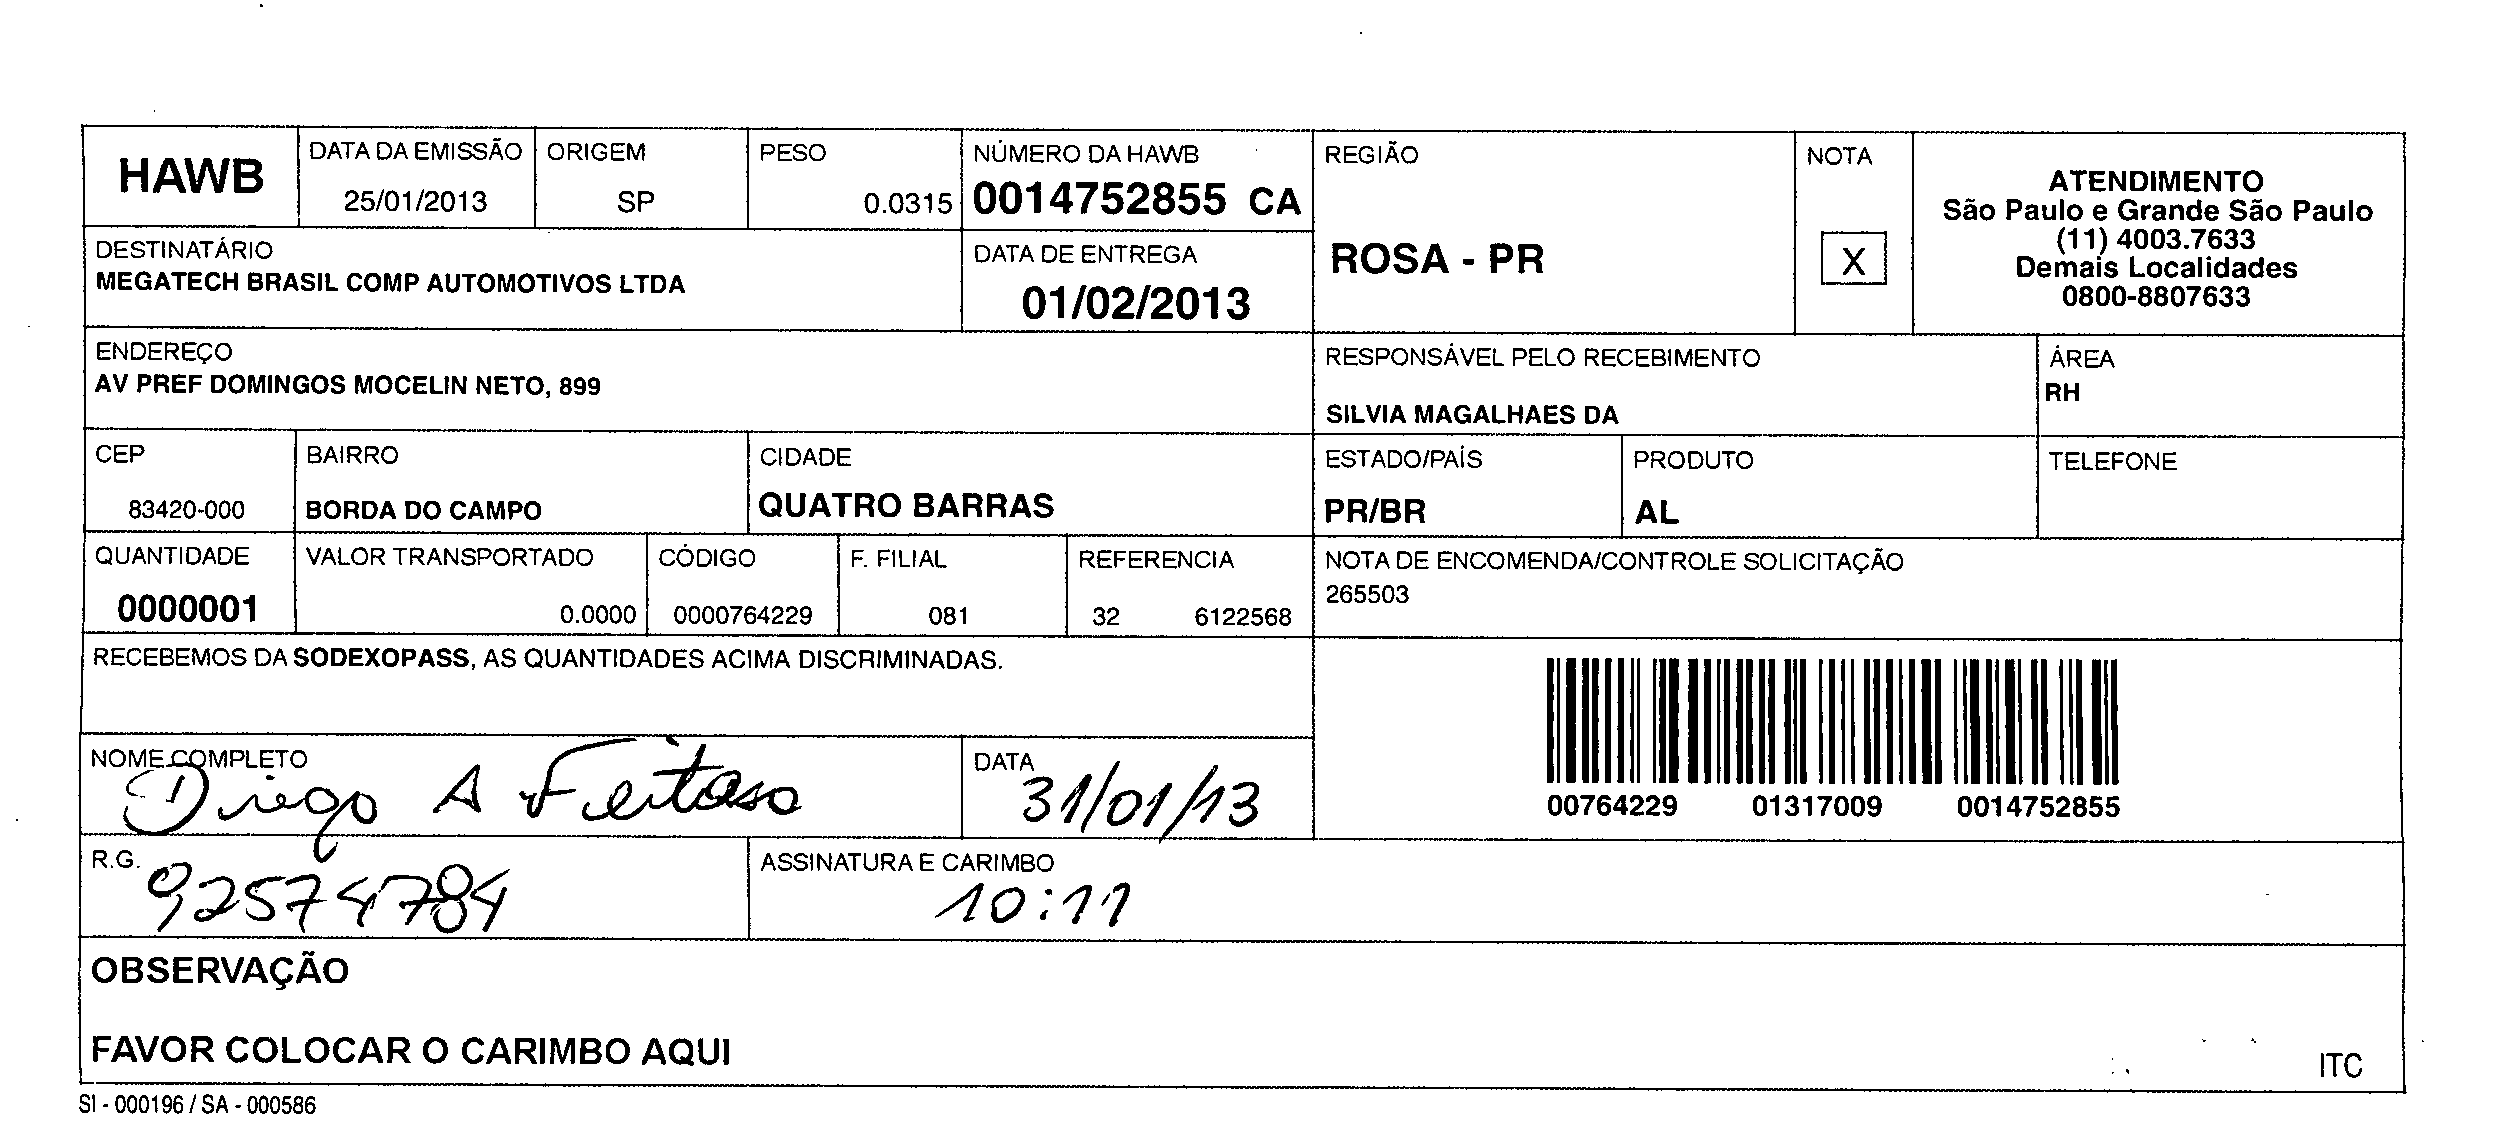 HAWB
DATA DA EMISSÃO
25/01/2013
ORIGEM
SP
PESO
0.0315
NÚMERO DA HAWB
0014752855 CA
REGIÃO
ROSA - PR
NOTA
X
ATENDIMENTO
São Paulo e Grande São Paulo
(11) 4003.7633
Demais Localidades
0800-8807633
DESTINATÁRIO
MEGATECH BRASIL COMP AUTOMOTIVOS LTDA
DATA DE ENTREGA
01/02/2013
ENDEREÇO
AV PREF DOMINGOS MOCELIN NETO, 899
RESPONSÁVEL PELO RECEBIMENTO
SILVIA MAGALHAES DA
ÁREA
RH
CEP
83420-000
BAIRRO
BORDA DO CAMPO
CIDADE
QUATRO BARRAS
ESTADO/PAÍS
PR/BR
PRODUTO
AL
TELEFONE
QUANTIDADE
0000001
VALOR TRANSPORTADO
0.0000
CÓDIGO
0000764229
F. FILIAL
081
REFERENCIA
32 6122568
NOTA DE ENCOMENDA/CONTROLE SOLICITAÇÃO
265503
RECEBEMOS DA SODEXOPASS, AS QUANTIDADES ACIMA DISCRIMINADAS.
00764229 01317009 0014752855
NOME COMPLETO
Diego A Feitosa
DATA
31/01/13
R.G.
92574784
ASSINATURA E CARIMBO
10:11
OBSERVAÇÃO
FAVOR COLOCAR O CARIMBO AQUI
ITC
SI - 000196 / SA - 000586